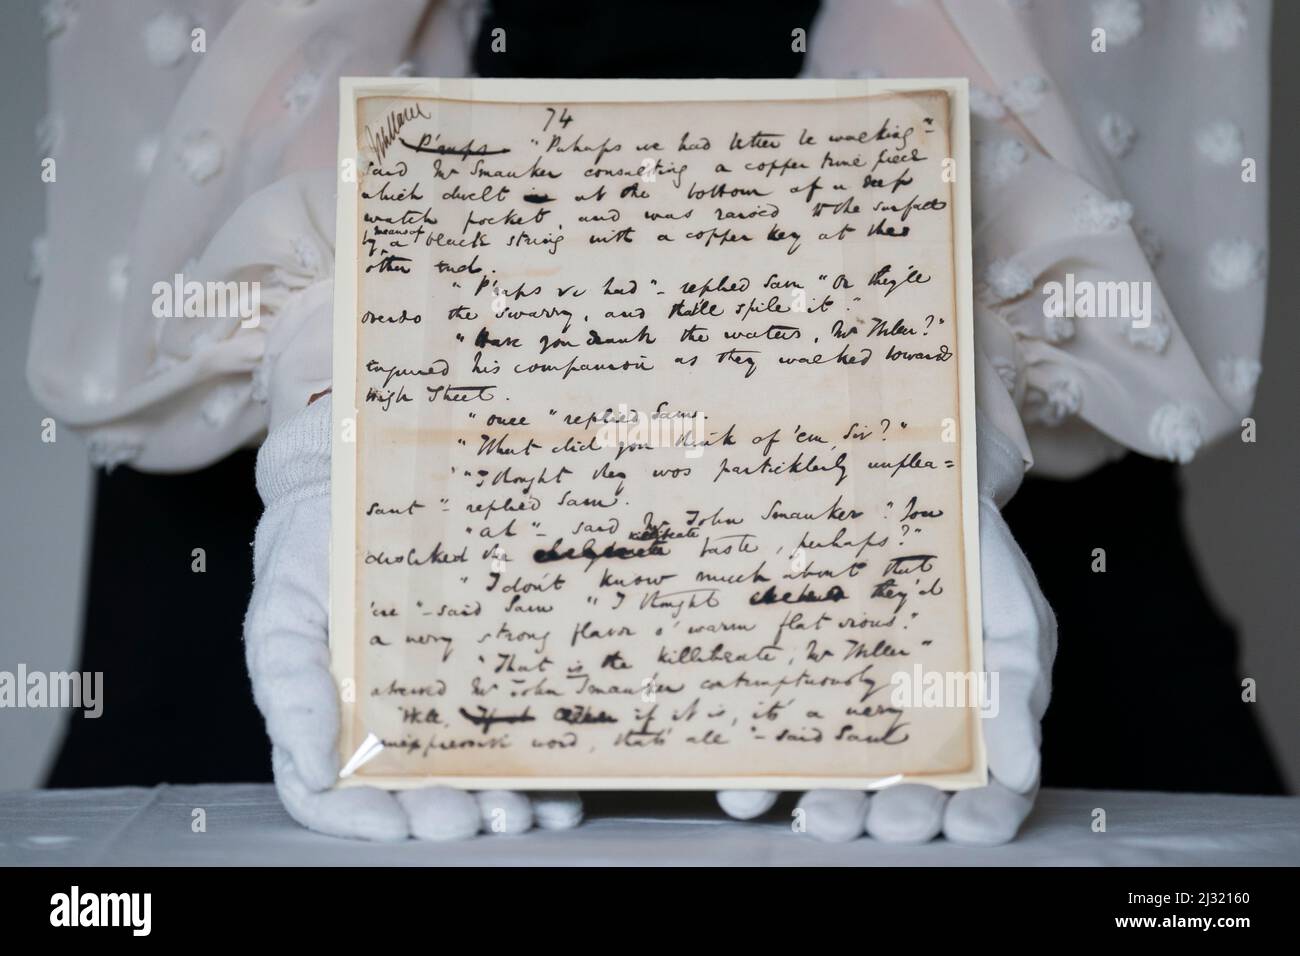 74
P'raps "Perhaps we had better be walking"-
said Mr Smauker consulting a copper time piece
which dwelt at the bottom of a deep
watch pocket, and was raised to the surface
by means of a black string with a copper key at the
other end.
"P'raps ve had"- replied Sam "Or they'll
overdo the swarry, and that'll spile it."
"Have you drank the waters, Mr Weller?"
enquired his companion as they walked towards
High Street.
"Once" replied Sam.
"What did you think of 'em, Sir?"
"I thought they wos particklerly unplea=
sant"- replied Sam.
"Ah"- said Mr John Smauker "You
disliked the killibeate taste, perhaps?"
"I don't know much about that
'ere"- said Sam "I thought they'd
a wery strong flavor o' warm flat irons."
"That is the killibeate, Mr Weller"
observed Mr John Smauker contemptuously
"Well, if it is, it's a wery
inexpressive word, that's all"- said Sam
alamy
a
Image ID: 2J32160
www.alamy.com